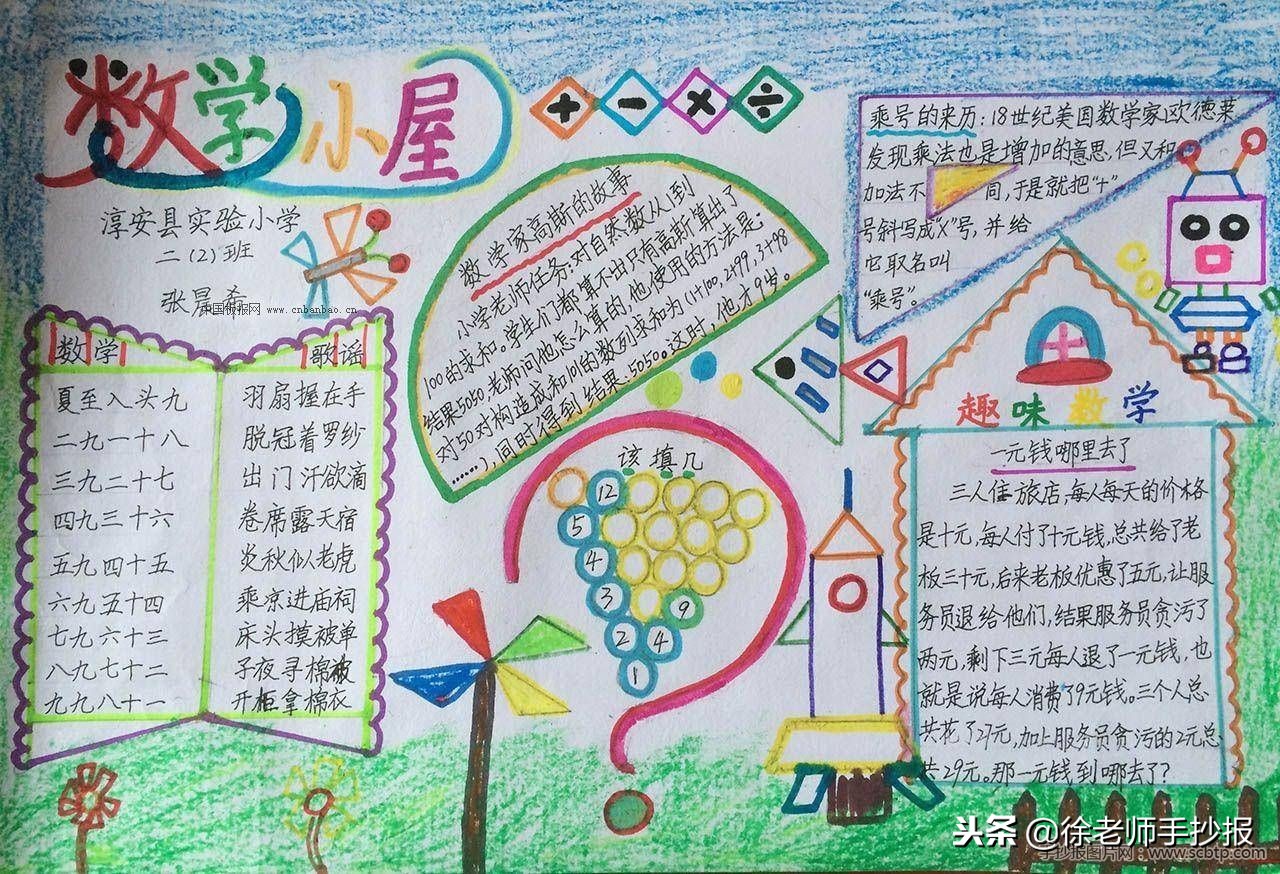 数学小屋
淳安县实验小学
二(2)班
中国板报网 www.cnbanbao.cn
+ − × ÷
数学 歌谣
夏至入头九 羽扇握在手
二九一十八 脱冠着罗纱
三九二十七 出门汗欲滴
四九三十六 卷席露天宿
五九四十五 炎秋似老虎
六九五十四 乘凉进庙祠
七九六十三 床头摸被单
八九七十二 子夜寻棉被
九九八十一 开柜拿棉衣
数学家高斯的故事
小学老师任务:对自然数从1到
100的求和。学生们都算不出只有高斯算出了
结果5050,老师问他怎么算的,他使用的方法是:
对50对构造成和101的数列求和为(1+100,2+99,3+98
……),同时得到结果:5050。这时,他才9岁。
该填几
12
5
4
3 9
2 4
1
乘号的来历:18世纪美国数学家欧德莱
发现乘法也是增加的意思,但又和
加法不 同,于是就把"+"
号斜写成"X"号,并给
它取名叫
"乘号"。
趣味数学
一元钱哪里去了
三人住旅店,每人每天的价格
是十元,每人付了十元钱,总共给了老
板三十元,后来老板优惠了五元,让服
务员退给他们,结果服务员贪污了
两元,剩下三元每人退了一元钱,也
就是说每人消费了9元钱。三个人总
共花了27元,加上服务员贪污的2元总
共29元。那一元钱到哪去了?
头条 @徐老师手抄报
手抄报图片网:www.scbtp.com